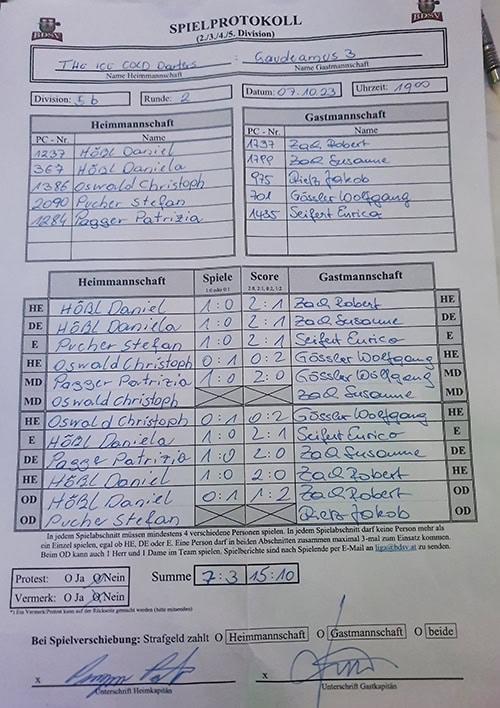 BDSV SPIELPROTOKOLL BDSV
(2./3./4./5. Division)
THE ICE COLD Darters : Gaudeamus 3
Name Heimmannschaft Name Gastmannschaft
Division: 5b Runde: 2 Datum: 07.10.23 Uhrzeit: 19 00
Heimmannschaft Gastmannschaft
PC - Nr. Name PC - Nr. Name
1237 Hößl Daniel 1737 Zach Robert
367 Hößl Daniela 1799 Zach Susanne
1386 Oswald Christoph 975 Jakob
2090 Pucher Stefan 701 Gössler Wolfgang
1284 Pagger Patrizia 1435 Seifert Enrico
Heimmannschaft Spiele Score Gastmannschaft
1:0 o. 0:1 2:0, 2:1, 0:2, 1:2
HE Hößl Daniel 1:0 2:1 Zach Robert HE
DE Hößl Daniela 1:0 2:1 Zach Susanne DE
E Pucher Stefan 1:0 2:1 Seifert Enrico E
HE Oswald Christoph 0:1 0:2 Gössler Wolfgang HE
MD Pagger Patrizia 1:0 2:0 Gössler Wolfgang MD
MD Oswald Christoph Zach Susanne MD
HE Oswald Christoph 0:1 0:2 Gössler Wolfgang HE
E Hößl Daniela 1:0 2:1 Seifert Enrico E
DE Pagger Patrizia 1:0 2:0 Zach Susanne DE
HE Hößl Daniel 1:0 2:0 Zach Robert HE
OD Hößl Daniel 0:1 1:2 Zach Robert OD
OD Pucher Stefan Jakob OD
In jedem Spielabschnitt müssen mindestens 4 verschiedene Personen spielen. In jedem Spielabschnitt darf keine Person mehr als
ein Einzel spielen, egal ob HE, DE oder E. Eine Person darf in beiden Abschnitten zusammen maximal 3-mal zum Einsatz kommen.
Beim OD kann auch 1 Herr und 1 Dame im Team spielen. Spielberichte sind nach Spielende per E-Mail an liga@bdsv.at zu senden.
Protest: O Ja O Nein Summe 7:3 15:10
Vermerk: O Ja O Nein
*) Ein Vermerk/Protest kann auf der Rückseite gemacht werden (bitte ankreuzen)
Bei Spielverschiebung: Strafgeld zahlt O Heimmannschaft O Gastmannschaft O beide
x x
Unterschrift Heimkapitän Unterschrift Gastkapitän